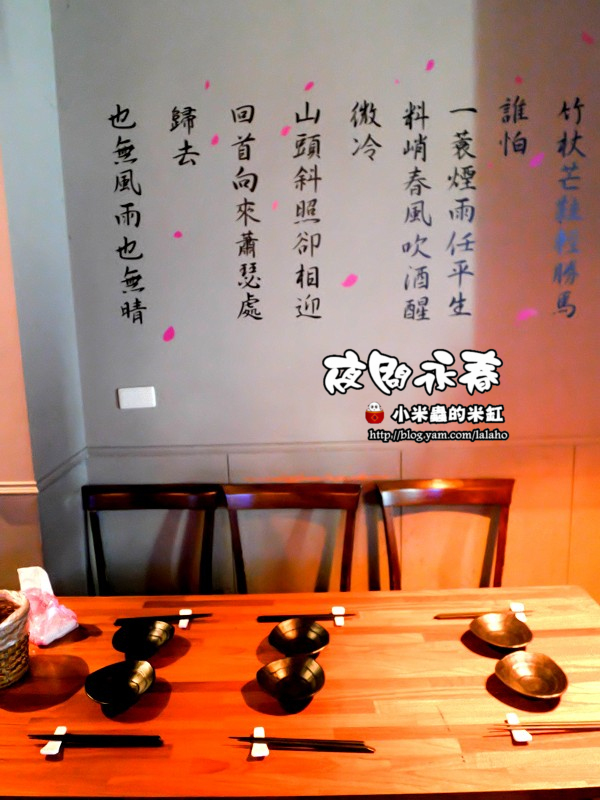 竹杖芒鞋輕勝馬
誰怕
一蓑煙雨任平生
料峭春風吹酒醒
微冷
山頭斜照卻相迎
回首向來蕭瑟處
歸去
也無風雨也無晴
夜問永春
小米蟲的米缸
http://blog.yam.com/lalaho